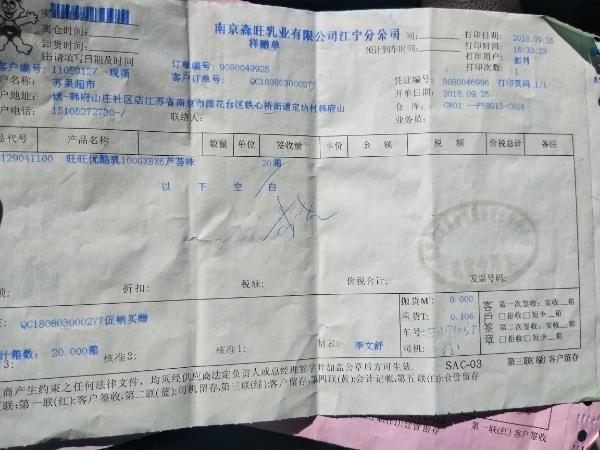 南京森旺乳业有限公司江宁分公司
样赠单
离仓时间:
卸货时间:
注:请填写日期及时间
打印日期: 2018.09.25
预计到车时间: 打印时间: 16:33:23
打印用户:
打印次数: 1
客户编号: 11059127 -现渠 订单编号: 9080049925 凭证编号: 8080046996 打印页码 1/1
苏果超市 客户订单号: QC180803000277 开单日期: 2018.09.25
户地址: 送-韩府山庄社区店江苏省南京市雨花台区铁心桥街道定坊村韩府山 仓 库: C801 --F58013-C004
户电话: 15105272730-/ 联络人: 业务员:
品代号 产品名称 数量 单位 签收量 单价 金 额 税 额 价税总计 备注
129041100 旺旺优酪乳100GX8X6芦荟味 20箱
以 下 空 白
额: 折扣: 税额: 价税合计: 发票号码:
QC180803000277促销买赠
抛货M³: 0.000
重货T: 0.106
车号:
司机:
客户签章
第一次签章: 实收__箱
□拒收□短少__箱
第二次签章: 实收__箱
□拒收□短少__箱
计箱数: 20.000箱 核准2: 核准1: 制表: 李文舒
SAC-03 第三联(绿)客户留存
商产生约束之任何法律文件, 均须经供应商法定负责人或总经理签字并加盖公章后方可生效.
联:第一联(红):客户签收,第二联(蓝):司机留存,第三联(绿):客户留存,第四联(黄):会计记帐,第五联(白):仓管留存
第一联(红)客户签收